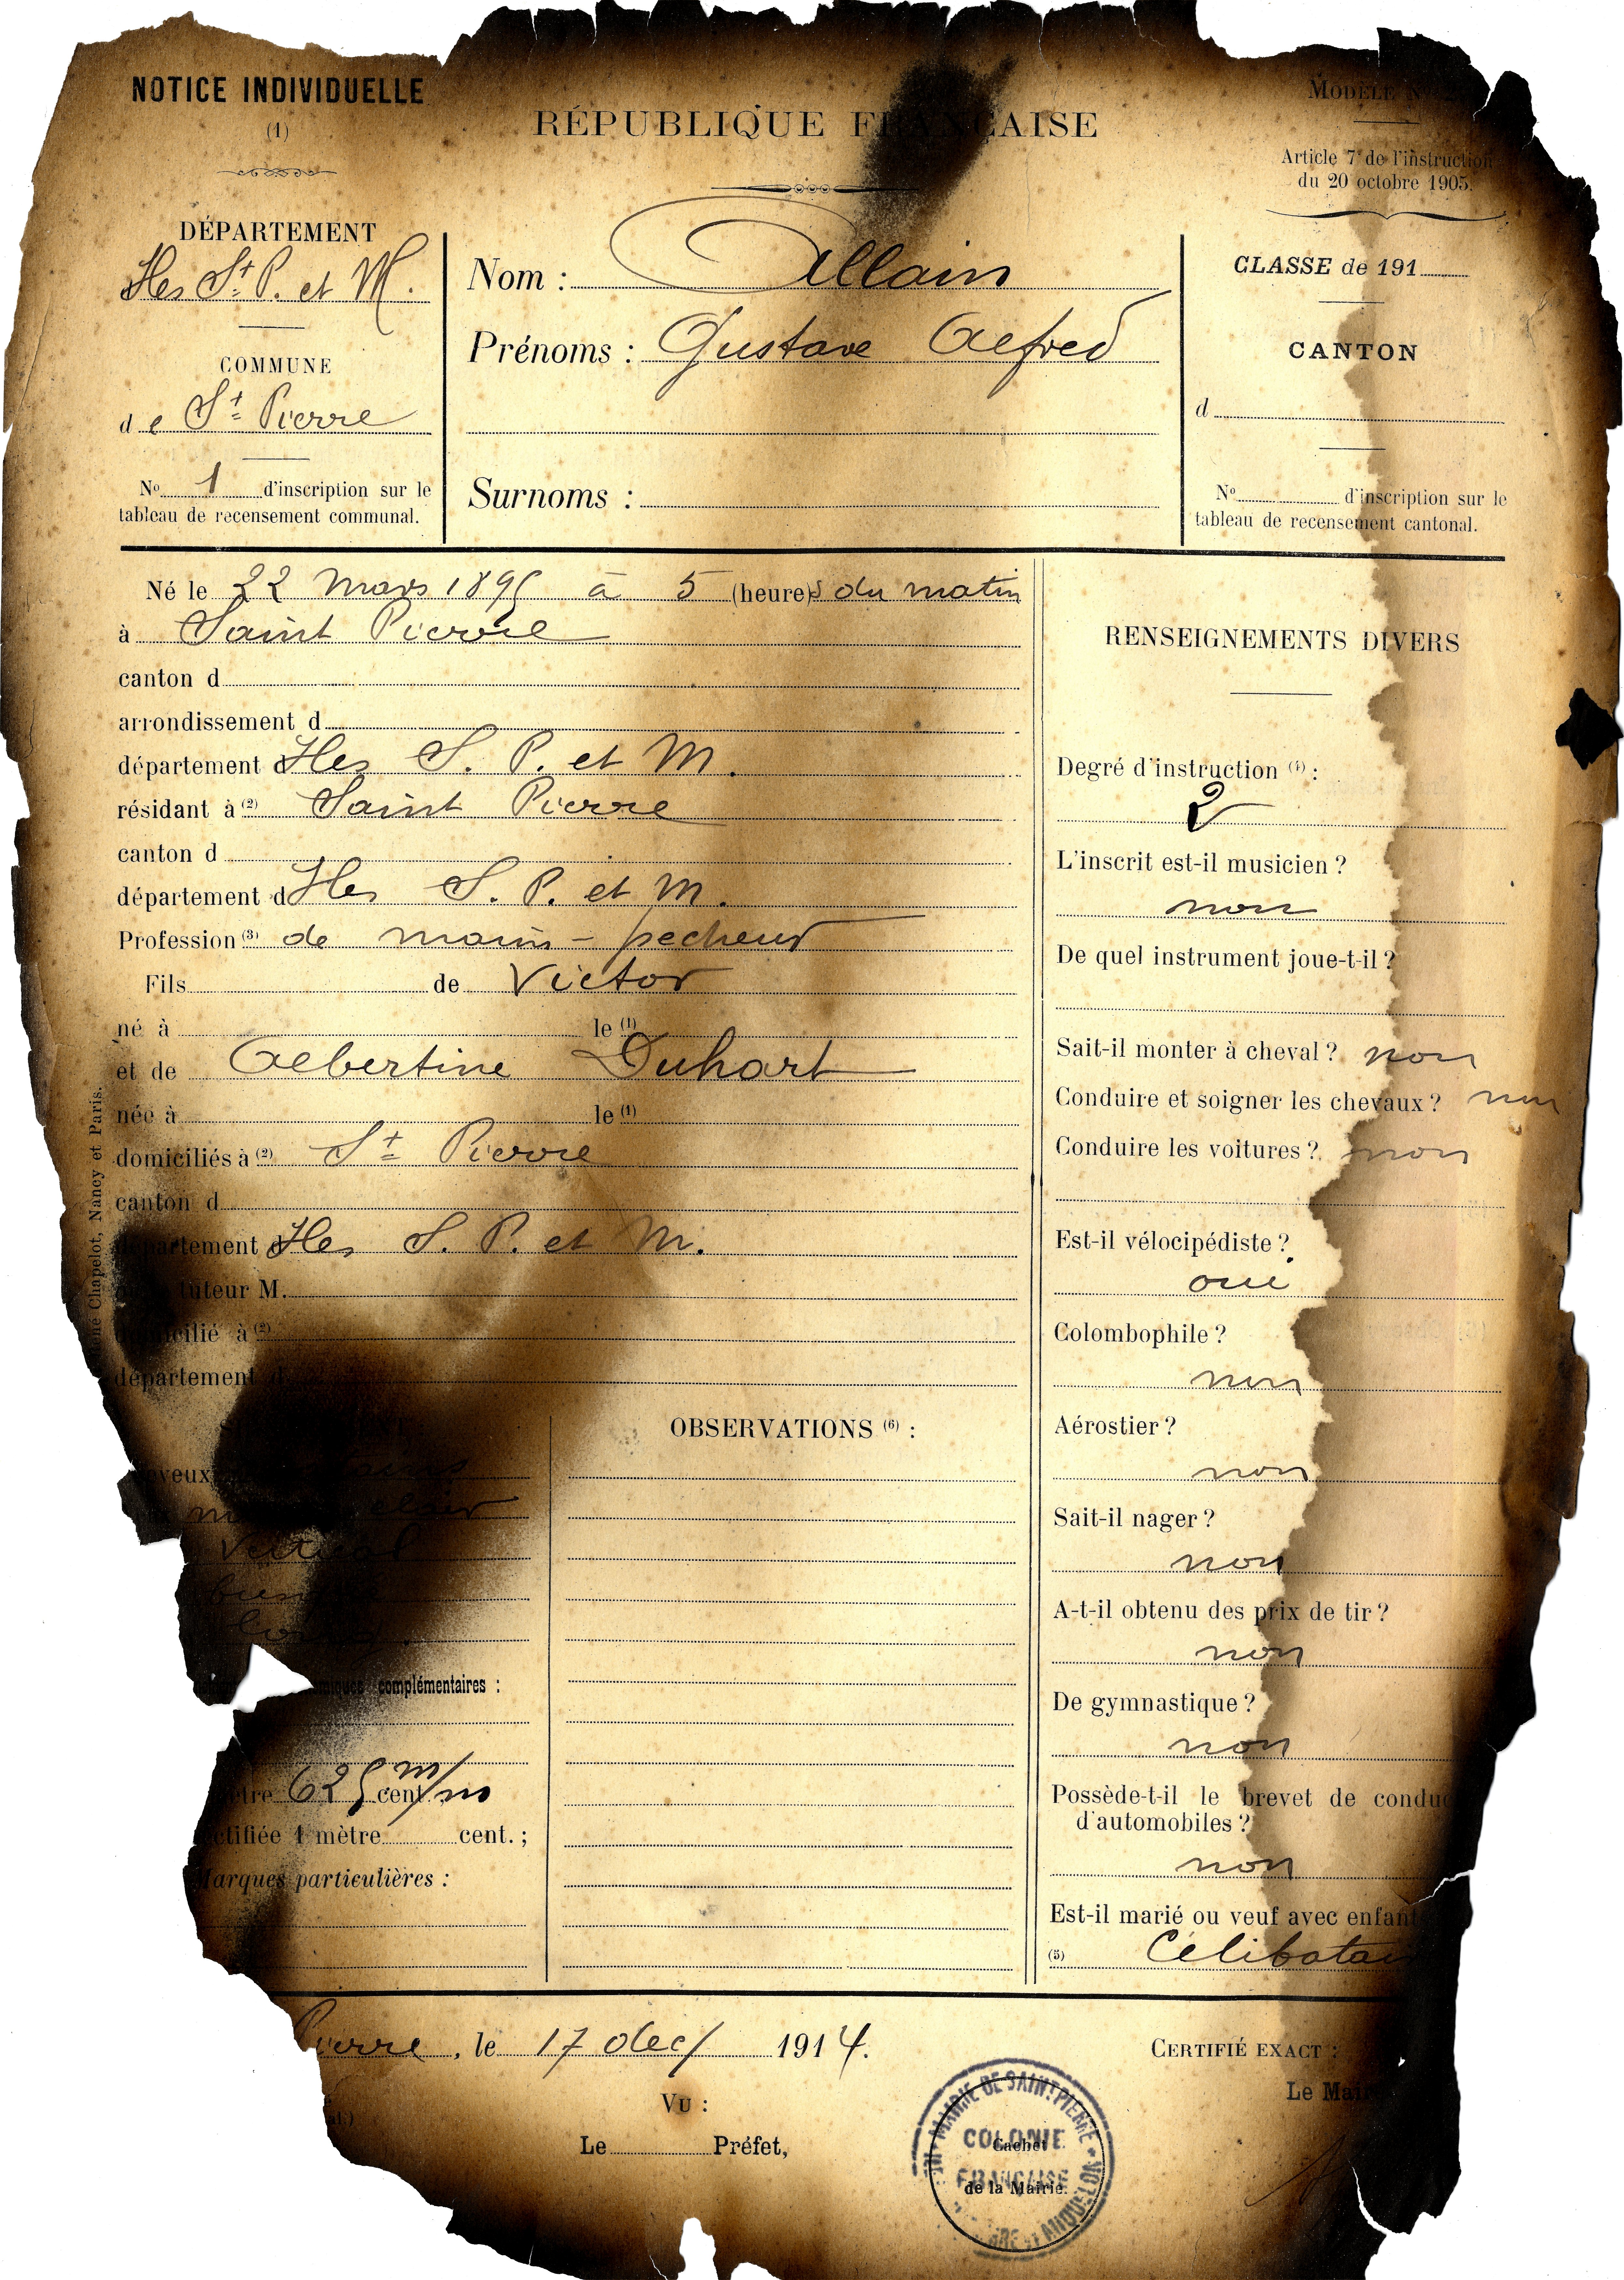 NOTICE INDIVIDUELLE
(1)
RÉPUBLIQUE FRANÇAISE
MODÈLE N°
Article 7 de l'instruction
du 20 octobre 1905.
DÉPARTEMENT
Iles St P. et M.
COMMUNE
de St Pierre
No 1 d'inscription sur le
tableau de recensement communal.
Nom : Allain
Prénoms : Gustave Alfred
Surnoms :
CLASSE de 191
CANTON
d
No d'inscription sur le
tableau de recensement cantonal.
Né le 22 Mars 1895 à 5 (heure)s du matin
à Saint Pierre
canton d
arrondissement d
département d Iles S. P. et M.
résidant à (2) Saint Pierre
canton d
département d Iles S. P. et M.
Profession (3) de marin-pecheur
Fils de Victor
né à le (1)
et de Albertine Duhart
née à le (1)
domiciliés à (2) St Pierre
canton d
département d Iles S. P. et M.
tuteur M.
domicilié à (2)
département d
clair
Vertical
complémentaires :
625 cent. m/m
rectifiée 1 mètre cent. ;
Marques particulières :
OBSERVATIONS (6) :
RENSEIGNEMENTS DIVERS
Degré d'instruction (4) :
2
L'inscrit est-il musicien ?
non
De quel instrument joue-t-il ?
Sait-il monter à cheval ? non
Conduire et soigner les chevaux ? non
Conduire les voitures ? non
Est-il vélocipédiste ?
oui
Colombophile ?
non
Aérostier ?
non
Sait-il nager ?
non
A-t-il obtenu des prix de tir ?
non
De gymnastique ?
non
Possède-t-il le brevet de condu
d'automobiles ?
non
Est-il marié ou veuf avec enfant
(5) Célibatai
Pierre, le 17 dec/ 1914.
VU :
Le Préfet,
CERTIFIÉ EXACT :
Le Mai
MAIRIE DE SAINT PIERRE
COLONIE
FRANÇAISE
Cachet
de la Mairie.
Chapelot, Nancy et Paris.